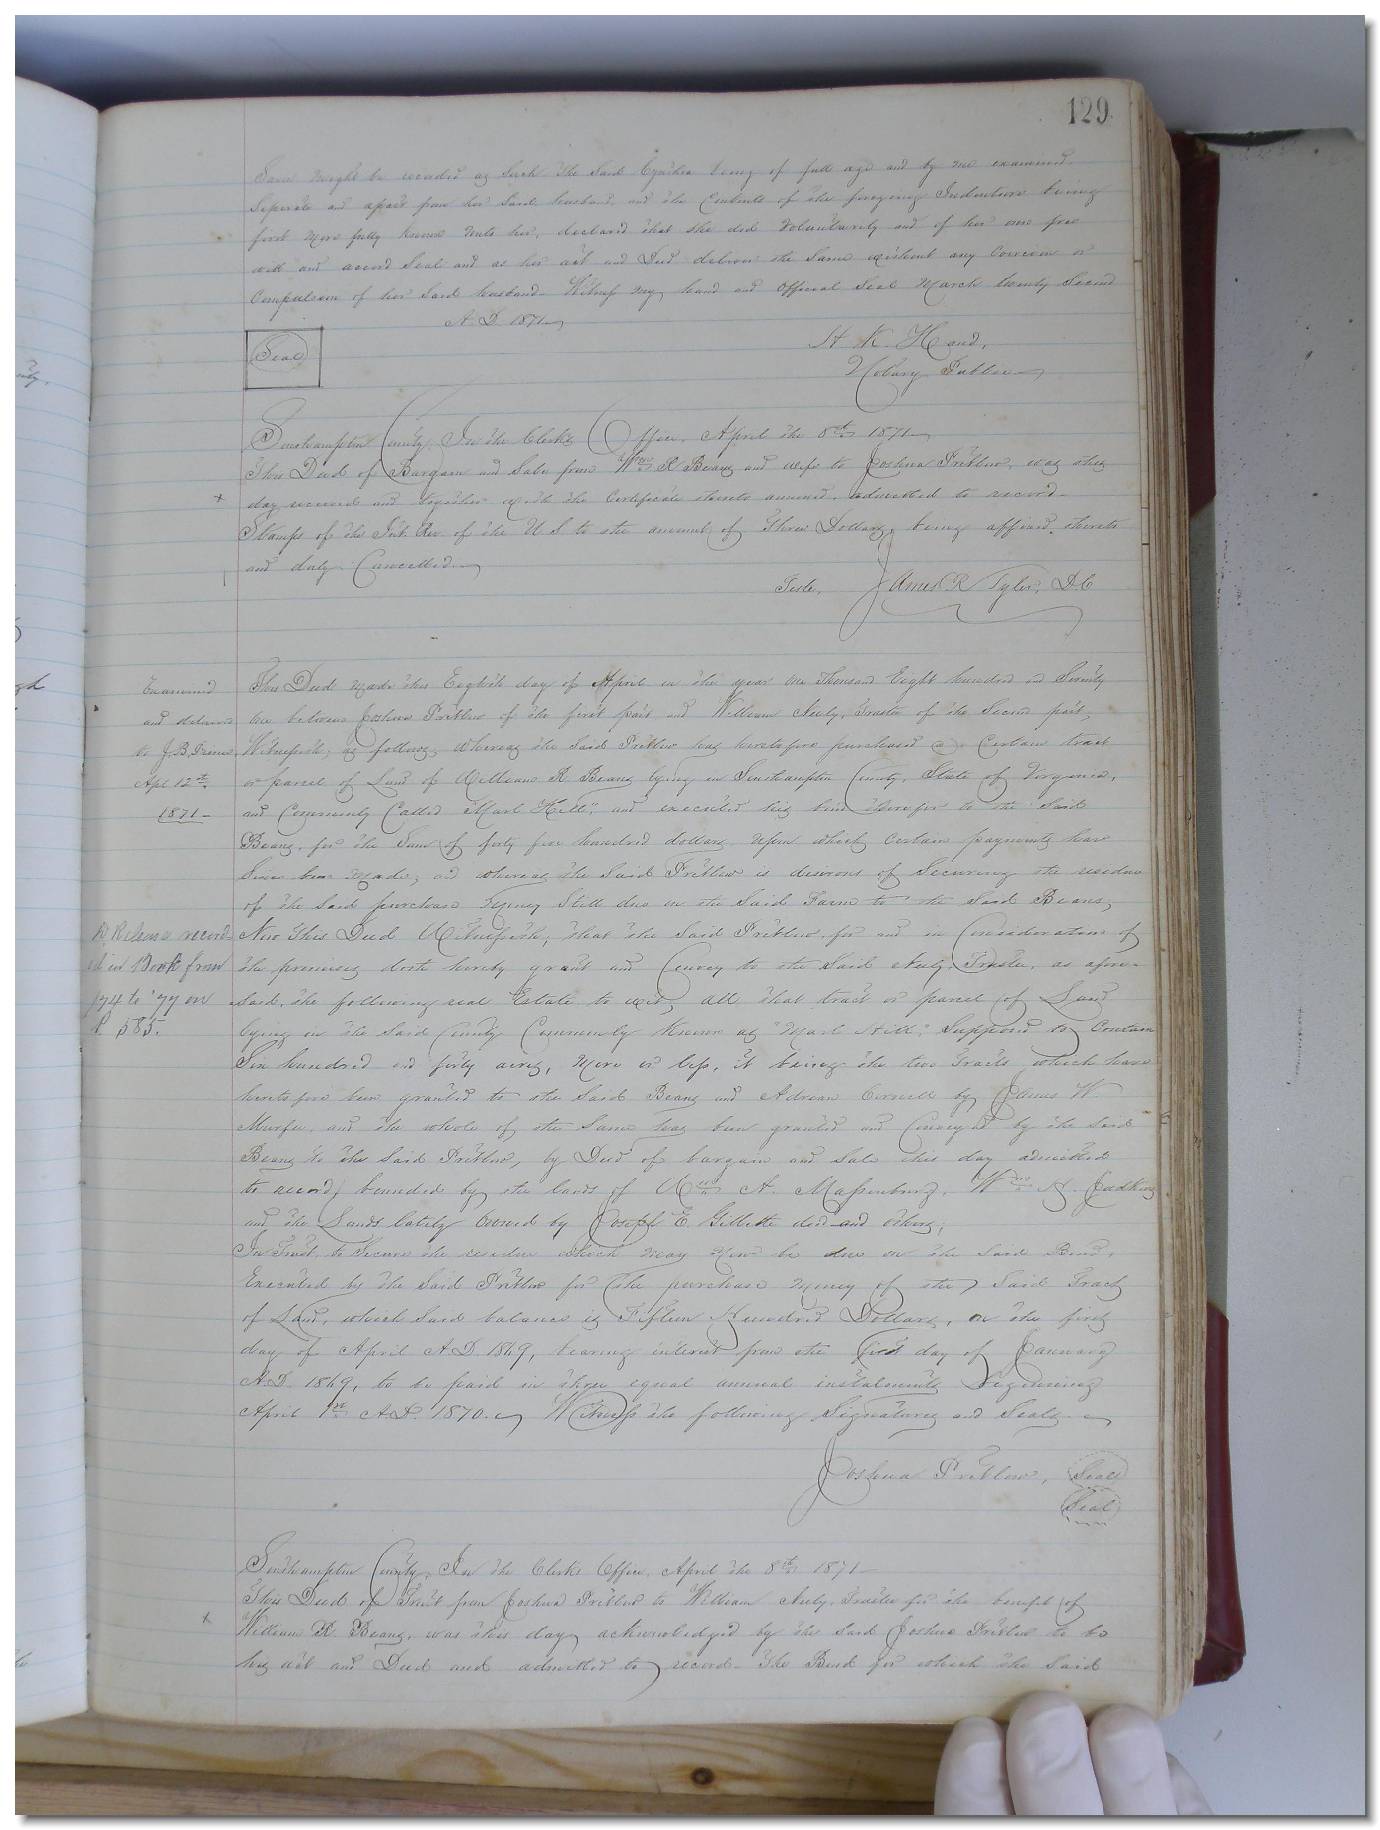 129
Same might be recorded as Such The Said Cynthia being of full age and by me examined
Seperate and apart from her Said husband, and the Contents of the foregoing Indenture being
first more fully known unto her, declared that she did Voluntarily and of her own free
will and accord Seal and as her act and Deed deliver the Same without any Coercion or
Compulsion of her Said husband. Witness my hand and Official Seal March twenty Second
A. D. 1871
Seal
H. K. Hand,
Notary Public
Southampton County, In the Clerks Office, April the 8th 1871
This Deed of Bargain and Sale from Wm R Beans and wife to Joshua Pretlow, was this
day received and together with the Certificate thereto annexed, admitted to record.
Stamps of the Int. Rev. of the U S to the amount of Three Dollars, being affixed thereto
and duly Cancelled.
Teste, James R Tyler, D. C
Examined
and delivered
to J. B. Prince
Apl 12th
1871
This Deed made this Eighth day of April in the year One Thousand Eight hundred and Seventy
One between Joshua Pretlow of the first part and William Neely, Trustee of the Second part,
Witnesseth, as follows, Whereas the Said Pretlow has heretofore purchased a Certain tract
or parcel of Land of William R Beans lying in Southampton County, State of Virginia,
and Commonly Called "Marl Hill," and executed his bond therefor to the Said
Beans, for the Sum of forty five hundred dollars upon which Certain payments have
Since been made, and whereas the Said Pretlow is desirous of Securing the residue
of the Said purchase money Still due on the Said Farm to the Said Beans,
Release record
ed in Book from
174 to '77 on
P 585.
Now This Deed Witnesseth, that the Said Pretlow for and in Consideration of
the premises doth hereby grant and Convey to the Said Neely, Trustee, as afore-
Said, the following real Estate to wit, All that tract or parcel of Land
lying in the Said County Commonly Known as "Marl Hill," Supposed to Contain
Six hundred and forty acres, more or less, it being the two Tracts which have
heretofore been granted to the Said Beans and Adrian Cornell by James W
Murfee, and the whole of the Same has been granted and Conveyed by the Said
Beans to the Said Pretlow, by Deed of bargain and Sale this day admitted
to record, bounded by the lands of Wm A. Massenburg, Wm N. Judkins
and the Lands lately Owned by Joseph E. Gillette decd and others,
In Trust, to Secure the residue which may now be due on the Said Bond,
Executed by the Said Pretlow for the purchase money of the Said Tract
of Land, which Said balance is Fifteen Hundred Dollars, on the first
day of April A.D. 1869, bearing interest from the first day of January
A.D. 1869, to be paid in three equal annual instalments beginning
April 1st A.D. 1870. Witness the following Signatures and Seals.
Joshua Pretlow, Seal
Seal
Southampton County, In the Clerks Office, April the 8th 1871
This Deed of Trust from Joshua Pretlow to William Neely, Trustee for the benefit of
William R. Beans, was this day acknowledged by the Said Joshua Pretlow to be
his act and Deed and admitted to record. The Bond for which the Said